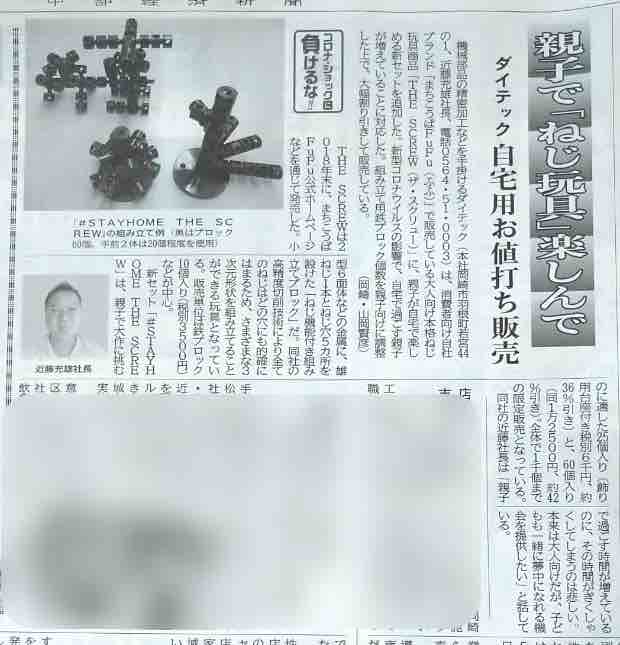 中部経済新聞
親子で「ねじ玩具」楽しんで
ダイテック 自宅用お値打ち販売
コロナ・ショック
負けるな!!
機械部品の精密加工などを手掛けるダイテック(本社岡崎市羽根町若宮44
の1、近藤充雄社長、電話0564・51・0003)は、消費者向け自社
ブランド「まちこうばFuFu(ふふ)」で販売している大人向け本格ねじ
玩具商品「THE SCREW(ザ・スクリュー)」に、親子が自宅で楽し
める新セットを追加した。新型コロナウイルスの影響で、自宅で過ごす親子
が増えていることに対応した。組み立て用鉄ブロック個数を親子向けに調整
した上で、大幅割り引きして販売している。
(岡崎・山岡賢彦)
THE SCREWは2
018年末に、まちこうば
FuFu公式ホームページ
などを通じて発売した。小
型6面体などの金属に、雄
ねじ1本とねじ穴5カ所を
設けた「ねじ機能付き組み
立てブロック」だ。同社の
高精度切削技術により全て
のねじはどの穴にも的確に
はまるため、さまざまな3
次元形状を組み立てること
ができる玩具となってい
る。販売単位は鉄ブロック
10個入り(税別3500円)
などが中心。
新セット「#STAYH
OME THE SCRE
W」は、親子で大作に挑む
のに適した25個入り(飾り
用台座付き税別6千円、約
36%引き)と、60個入り
(同1万2500円、約42
%引き)。全体で1千個まで
の限定販売となっている。
同社の近藤社長は「親子
で過ごす時間が増えている
のに、その時間がぎくしゃ
くしてしまうのは悲しい。
本来は大人向けだが、子ど
もも一緒に夢中になれる機
会を提供したい」と話して
いる。
「#STAYHOME THE SC
REW」の組み立て例(奥はブロック
60個、手前2体は20個程度を使用)
近藤充雄社長